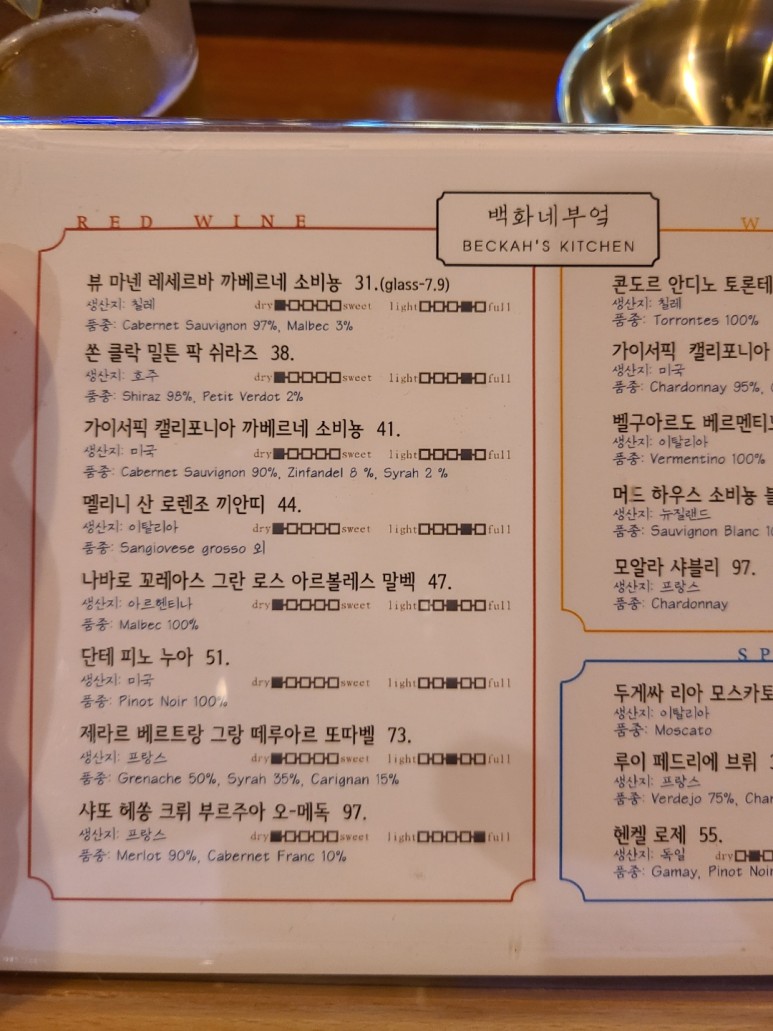 백화네부엌
BECKAH'S KITCHEN
RED WINE
뷰 마넨 레세르바 까베르네 소비뇽 31.(glass-7.9)
생산지: 칠레 dry sweet light full
품종: Cabernet Sauvignon 97%, Malbec 3%
쏜 클락 밀튼 팍 쉬라즈 38.
생산지: 호주 dry sweet light full
품종: Shiraz 98%, Petit Verdot 2%
가이서픽 캘리포니아 까베르네 소비뇽 41.
생산지: 미국 dry sweet light full
품종: Cabernet Sauvignon 90%, Zinfandel 8 %, Syrah 2 %
멜리니 산 로렌조 끼안띠 44.
생산지: 이탈리아 dry sweet light full
품종: Sangiovese grosso 외
나바로 꼬레아스 그란 로스 아르볼레스 말벡 47.
생산지: 아르헨티나 dry sweet light full
품종: Malbec 100%
단테 피노 누아 51.
생산지: 미국 dry sweet light full
품종: Pinot Noir 100%
제라르 베르트랑 그랑 떼루아르 또따벨 73.
생산지: 프랑스 dry sweet light full
품종: Grenache 50%, Syrah 35%, Carignan 15%
샤또 헤쏭 크뤼 부르주아 오-메독 97.
생산지: 프랑스 dry sweet light full
품종: Merlot 90%, Cabernet Franc 10%
W
콘도르 안디노 토론테
생산지: 칠레
품종: Torrontes 100%
가이서픽 캘리포니아
생산지: 미국
품종: Chardonnay 95%,
벨구아르도 베르멘티
생산지: 이탈리아
품종: Vermentino 100%
머드 하우스 소비뇽
생산지: 뉴질랜드
품종: Sauvignon Blanc
모알라 샤블리 97.
생산지: 프랑스
품종: Chardonnay
SP
두게싸 리아 모스카토
생산지: 이탈리아
품종: Moscato
루이 페드리에 브뤼
생산지: 프랑스
품종: Verdejo 75%, Char
헨켈 로제 55.
생산지: 독일 dry
품종: Gamay, Pinot Noir